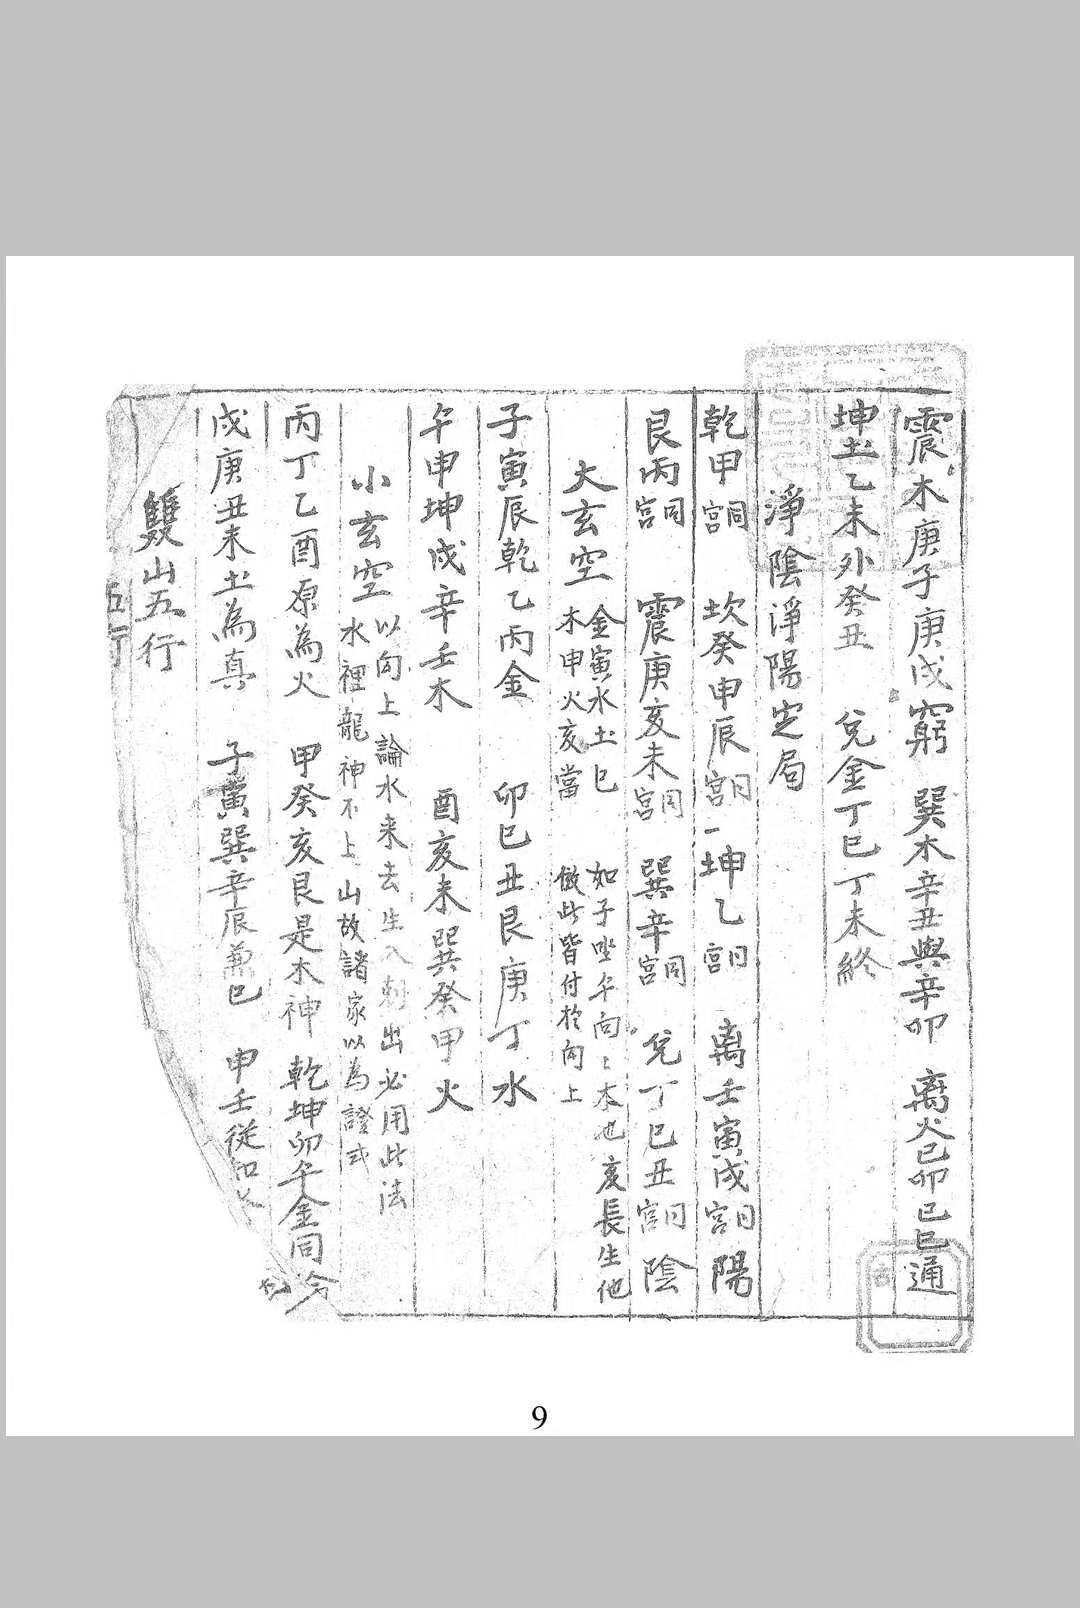 震木庚子庚戌窮　巽木辛丑與辛卯　离火己卯己巳通
坤土乙未外癸丑　兌金丁巳丁未終
淨陰淨陽定局
乾甲同宮　坎癸申辰同宮　坤乙同宮　离壬寅戌同宮　陽
艮丙同宮　震庚亥未同宮　巽辛同宮　兌丁巳丑同宮　陰
大玄空
金寅水土巳　如子坐午向〻木也亥長生他
木申火亥當　倣此皆付於向上
子寅辰乾乙丙金　卯巳丑艮庚丁水
午申坤戌辛壬木　酉亥未巽癸甲火
小玄空
以向上論水来去生入剋出必用此法
水裡龍神不上山故諸家以為證
丙丁乙酉原為火　甲癸亥艮是木神　乾坤卯午金同
戌庚丑未土為真　子寅巽辛辰兼巳　申壬從
雙山五行
9